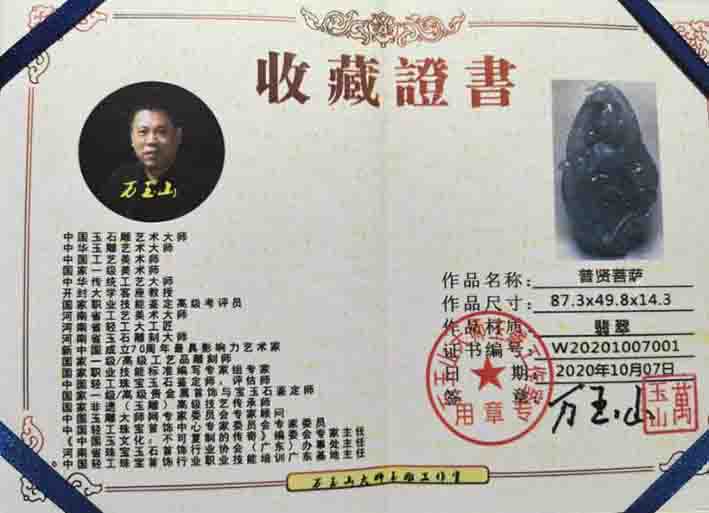 收藏證書
万玉山
中国玉石雕艺术大师
中华玉雕艺术大师
中国工艺美术师
国家一级美术师
中华传统工艺大师
开封大学客座教授
国家职业技能鉴定高级考评员
河南省工艺美术大师
河南省轻工大工匠
河南省玉石雕刻大师
新中国成立70周年最具影响力艺术家
国家一级/高级工艺品雕刻师
国家职业技能标准编写专家组专家
中国轻工珠宝玉石鉴定师,评估师
国家一级/高级贵金属首饰与宝玉石鉴定师
国家非遗(玉雕)高级技艺传承师
中国玉雕大师专家委员会专家顾问
中国轻工珠宝首饰中心专家委员会专家委员
《中国玉文化,不可复制的传奇》编委会专家主任
河南省珠宝玉石首饰行业协会(广东)办事处主任
中国轻工珠宝首饰行业职业技能培训广东基地主任
作品名称: 普贤菩萨
作品尺寸: 87.3x49.8x14.3
作品材质: 翡翠
证书编号: W20201007001
日 期: 2020年10月07日
签 章: 万玉山
萬玉山
专用章
万玉山大师玉雕工作室